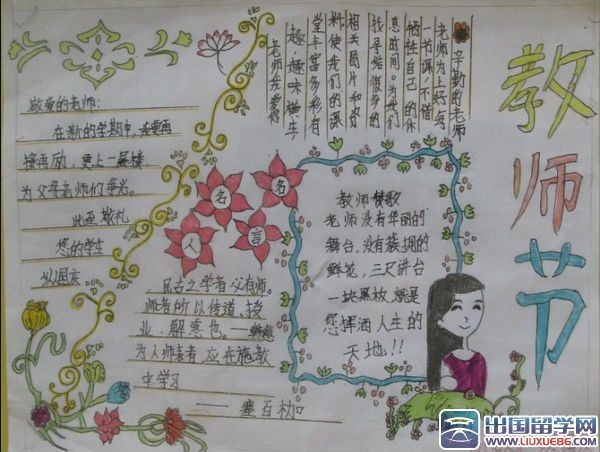 教师节
辛勤的老师
老师为上好每
一节课,不惜
牺牲自己的休
息时间。为我们
找寻给很多的
相关图片和资
料,使我们的课
堂丰富多彩有
趣,趣味横生
老师我爱你
敬爱的老师:
在新的学期中,我要再
接再励,更上一层楼
为父母老师们争光。
此至敬礼
您的学生
名人名言
古之学者必有师。
师者所以传道、授
业、解惑也。——韩愈
为人师表者应在施教
中学习
教师赞歌
老师没有华丽的
舞台,没有簇拥的
鲜花,三尺讲台
一块黑板,就是
您挥洒人生的
天地!!
出国留学网
WWW.LIUXUE86.COM